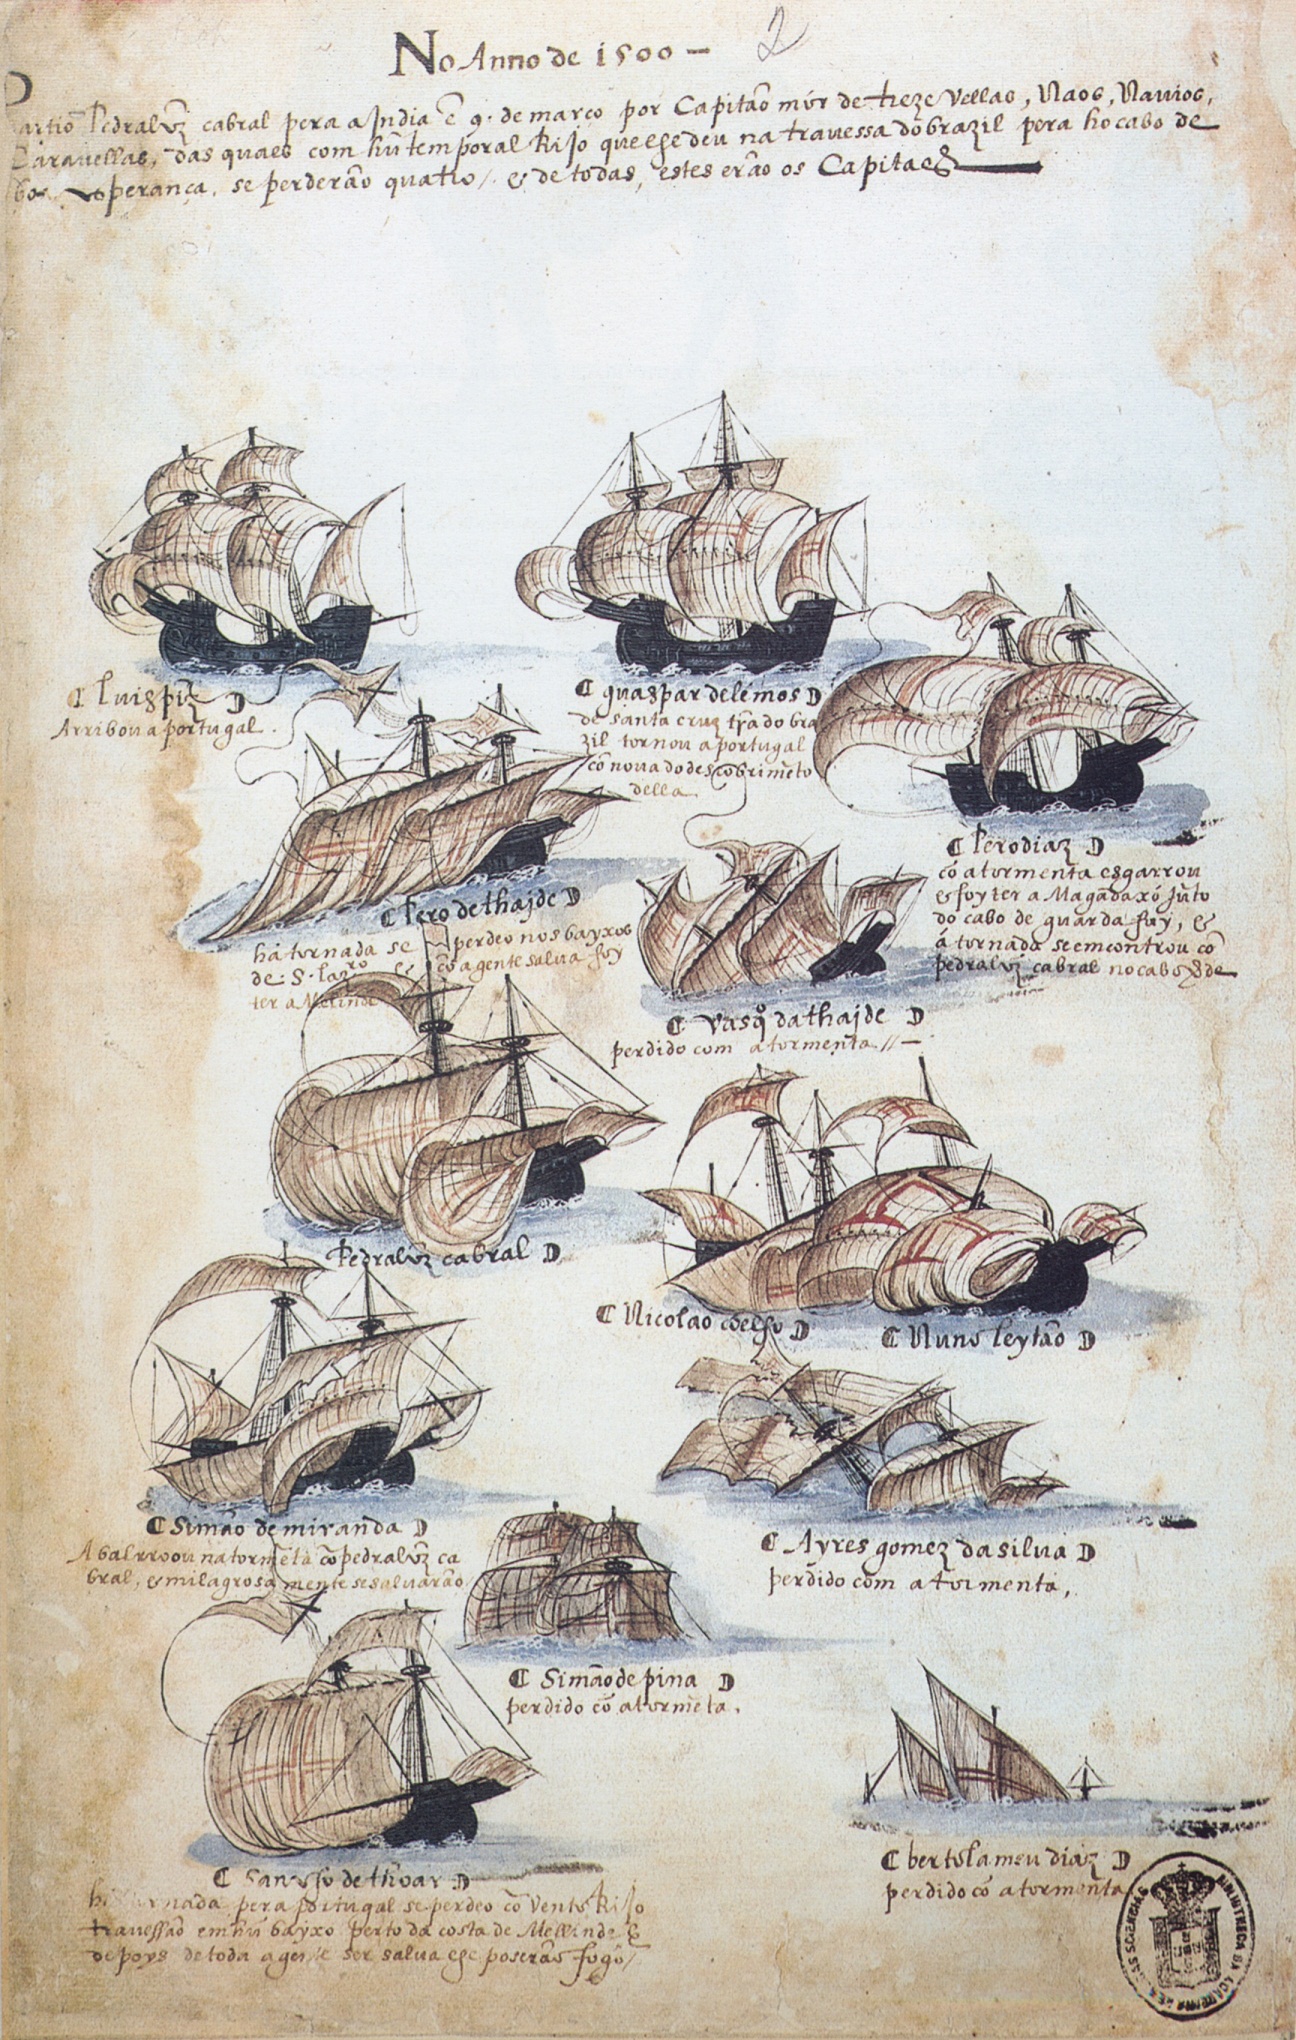 No Anno de 1500 — 2
Partio Pedralvz cabral pera a India ẽ 9. de março por Capitão mór de treze vellas, Naos, Navios,
Caravellas, das quaes com hũ temporal Rijo que se deu na travessa do brazil pera ho cabo de
boa sperança, se perderão quatro / & de todas, estes erão os Capitaẽs
Luis piz
Arribou a portugal.
guaspar delémos
de santa cruz trã do bra
zil tornou a portugal
cõ nova do descobrimẽto
della
Pero diaz
cõ a tormenta esgarrou
& foy ter a Magadaxó jũto
do cabo de guarda fuy, &
á tornada se emcontrou cõ
pedralvz cabral no cabo vrde
Pero de thajde
há tornada se perdeo nos bayxos
de S. Lazro & cõ a gente salva foy
ter a Melinde
Vasq dathajde
perdido com a tormenta //—
Pedralvz cabral
Nicolao coelho
Nuno leytão
Simão de miranda
Abalrroou na tormẽta cõ pedralvz ca
bral, & milagrosamente se salvarão
Ayres gomez da silva
perdido com a tormenta,.
Simão de pina
perdido cõ a tormẽta.
Sancho de thoar
tornada pera portugal se perdeo cõ vento Rijo
travessão em hũ bayxo perto da costa de Mellinde &
depoys de toda a gente ser salva lhe poserão fogo /
bertolameu diaz
perdido cõ a tormenta
BIBLIOTHECA DA ACADEMIA DAS SCIENCIAS